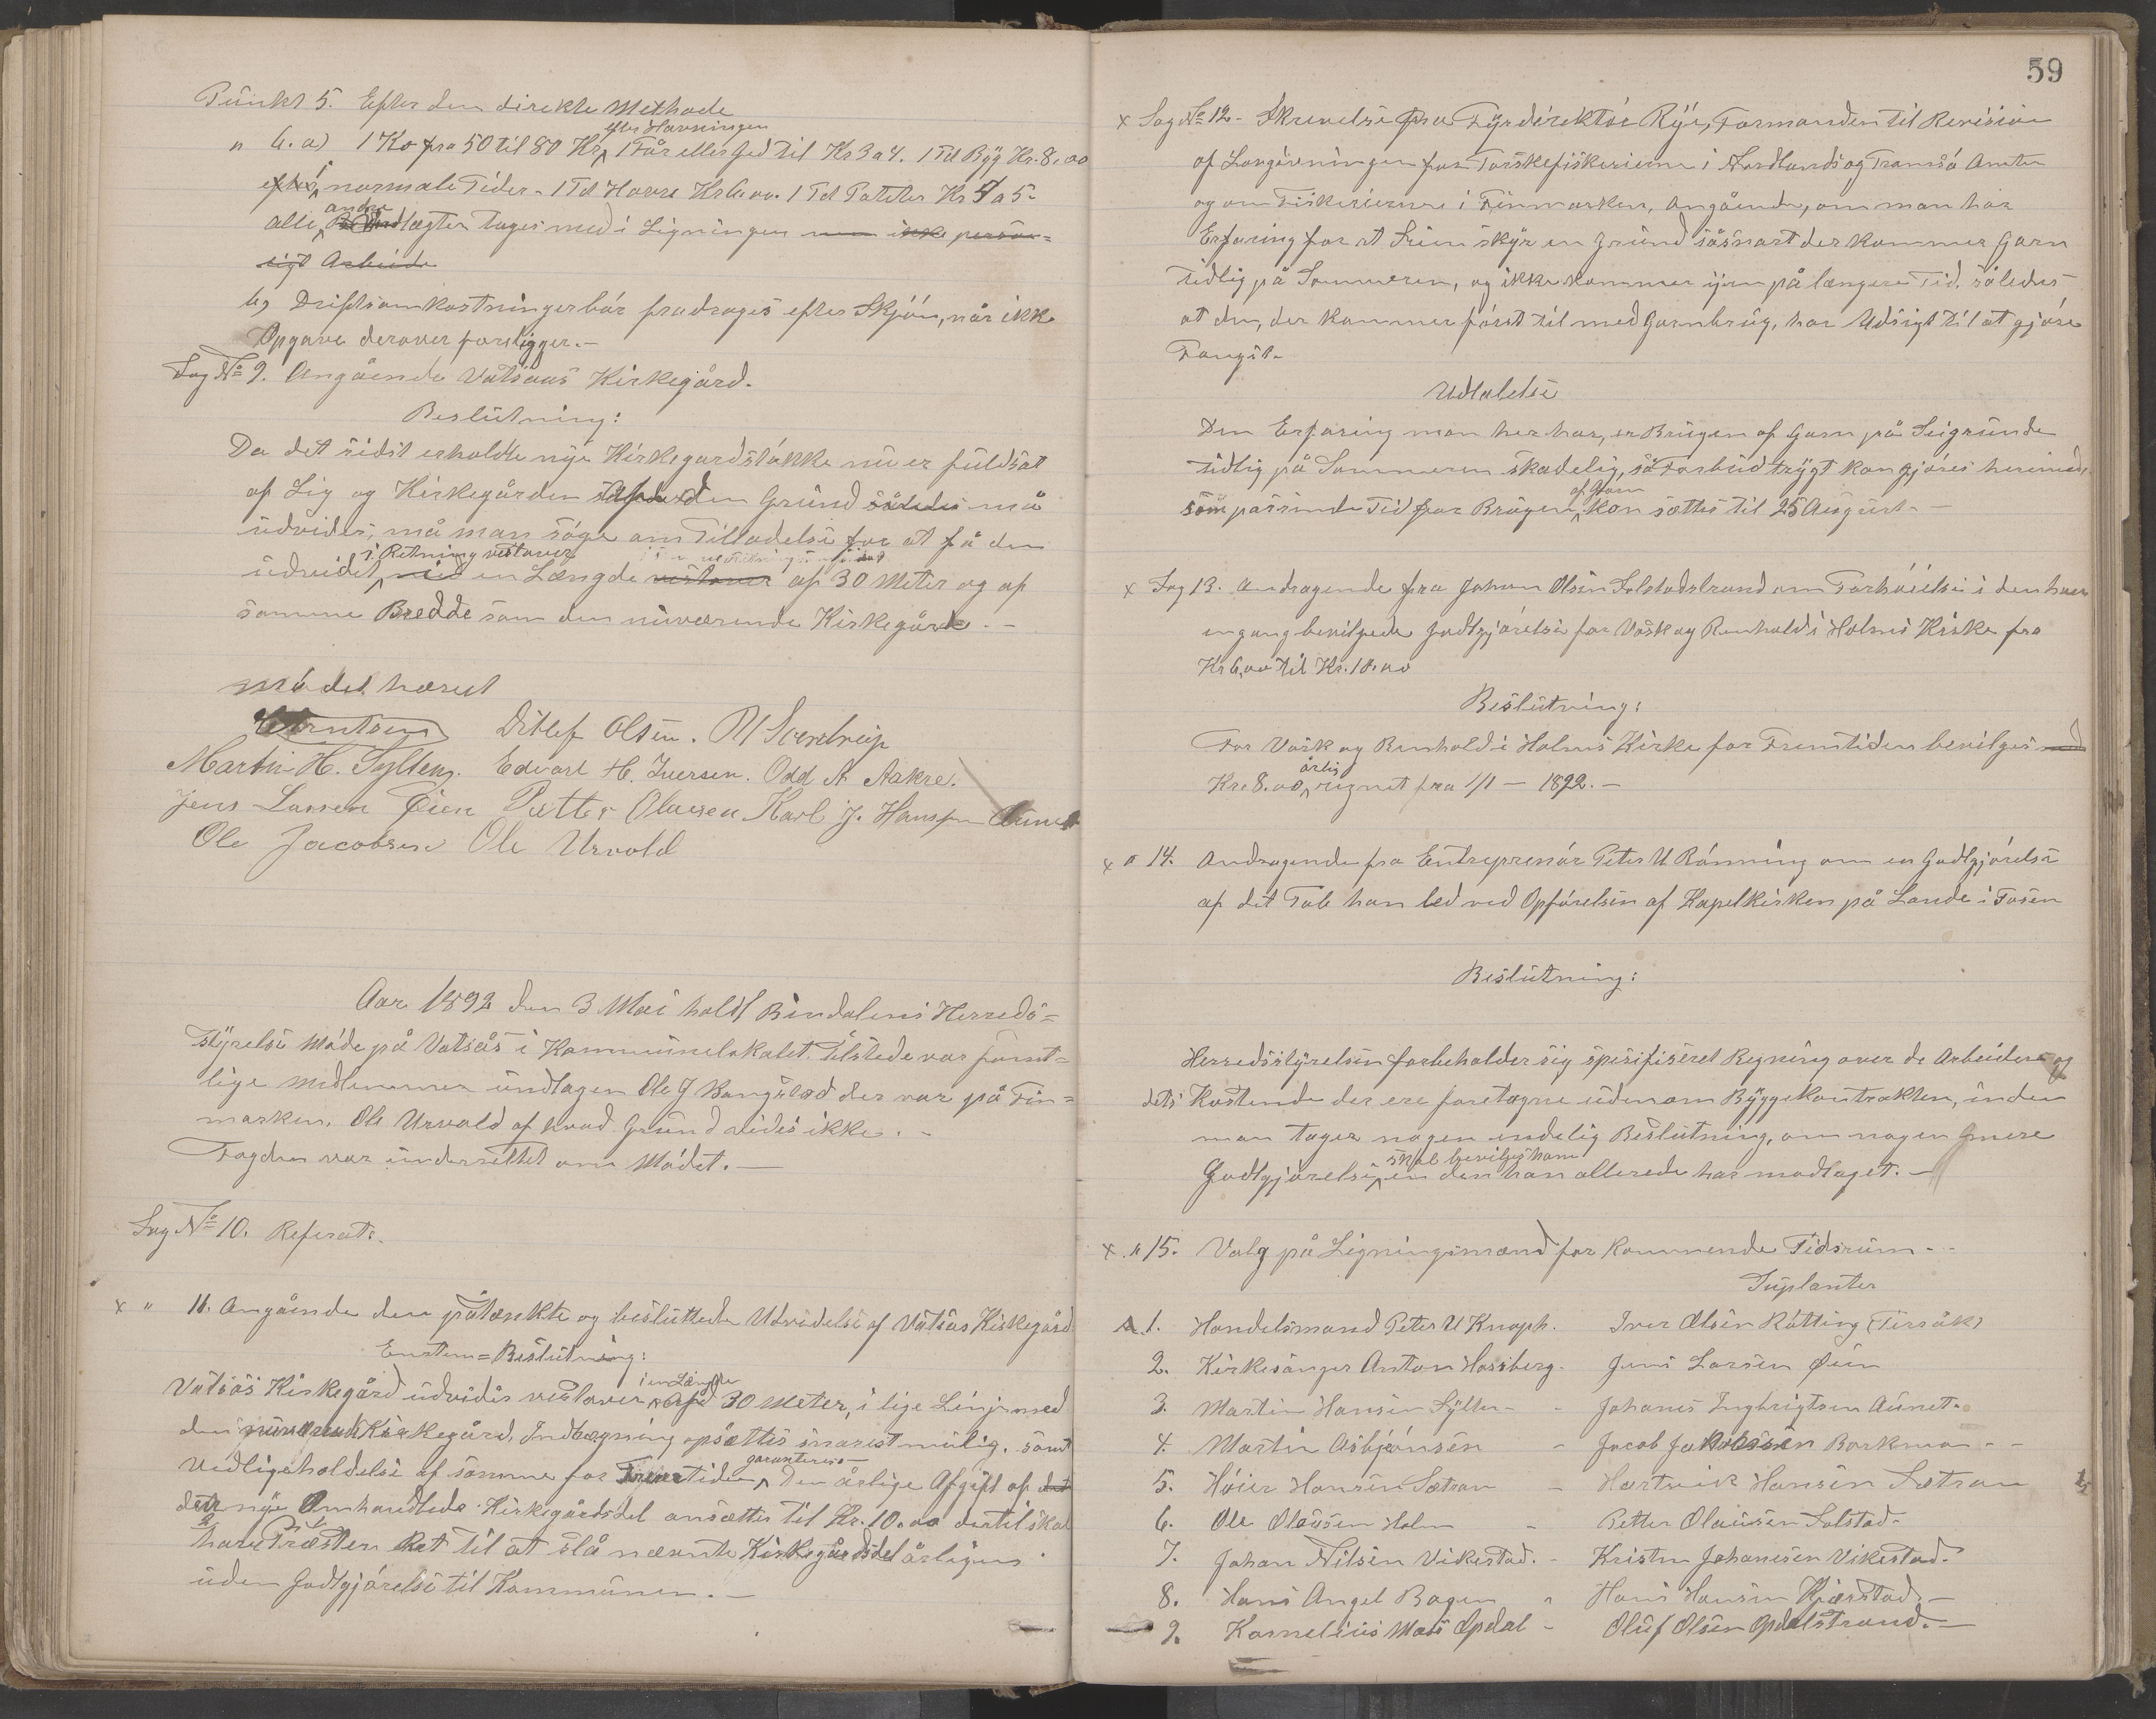 Punkt 5. Efter den direkte Methode
" 6. a) 1 Ko fra 50 til 80 Kr, efter Havningen 1 Får eller Ged til Kr 3 a 4. 1 Td Byg Kr. 8,00
i normale Tider - 1 Td Havre Kr 6,00. 1 Td Poteter Kr 4 a 5-
alle andre Indtægter tages med i Ligningen men ikke person=
ligt Arbeide
b, Driftsomkostninger bör fradrages efter Skjön, når ikke
Opgave derover foreligger.-
Sag No 9. Angående Vatsaas Kirkegård.
Beslutning:
Da det sidst erholdte nye Kirkegardstökke nu er fuldsat
af Lig og Kirkegården af den Grund således må
udvides, må man söge om Tilladelse for at få den
udvidet i Retning vestover med en Længde vestover af 30 Meter og af
samme Bredde som den nuværende Kirkegård. -
Mödet hævet
Berntsen Ditlef Olsen. Sverdrup
Martin H. Sylten. Edvart H. Iversen. Odd A Aakre.
Jens Larsen Øien Petter Olausen Karl J. Hansen Aunet
Ole Jacobsen Ole Urvold
Aar 1892 den 3 Mai holdt Bindalens Herreds=
styrelse Möde på Vatsås i Kommunelokalet. Tilstede var samt=
lige Medlemmer undtagen Ole J Kangslad der var på Fin=
marken. Ole Urvold af hvad Grund vides ikke. -
Fogden var underrettet om Mödet. -
Sag No 10. Referat.
x " 11. Angående den påtænkte og besluttede Udvidelse af Vatsås Kirkegård
Enstem= Beslutning:
Vatsås Kirkegård udvides vestover i en Længde af 30 Meter, i lige Linje med
den nuværende Kirkegård. Indhegning opsættes snarest mulig, samt
Vedligeholdelse af samme for Fremtiden garanteres - Den årlige Afgift af det
den nye Omhandlede Kirkegårdsdel ansættes til Kr. 10.00 dertil skal
have Præsten Ret til at slå nævnte Kirkegårdsdel årligen
uden Godtgjörelse til Kommunen. -
59
x Sag No 12 - Skrivelse fra Fyrdirektör Rye, Formanden til Revision
af Lovgivningen for Torskefiskerierne i Nordlands og Tromsö Amter
og om Fiskerierne i Finmarken, angående, om man har
Erfaring for at Seien skyr en Grund såsnart der kommer Garn
tidlig på Sommeren, og ikke kommer igjen på længere Tid, således
at den, der kommer först til med Garnbrug, har Udsigt til at gjöre
Fangst-
Udtalelse
Den Erfaring man her har, er Brugen af Garn på Seigrunde
tidlig på Sommeren skadelig, så Forbud trygt kan gjöres herimod,
som passende Tid for Brugen af Garn kan sættes til 25 August -
x Sag 13. Andragende fra Johan Olsen Solstadstrand om Forhöielse i den ham
engang bevilgede Godtgjörelse for Vask og Renhold i Holms Kirke fra
Kr 6,00 til Kr. 10.00
Beslutning:
For Vask og Renhold i Holms Kirke for Fremtiden bevilges
Kr. 8.00 årlig regnet fra 1/1 - 1892. -
x " 14. Andragende fra Entreprenör Peter U Rönning om en Godtgjörelse
af det Tab han led ved Opförelsen af Kapelkirken på Lande i Tosen
Beslutning:
Herredsstyrelsen forbeholder sig spesifiseret Regning over de Arbeider og
dets Kostende der ere foretagne udenom Byggekontrakten, inden
man tager nogen endelig Beslutning, om nogen mere
Godtgjörelse skal bevilges ham en den han allerede har modtaget. -
x " 15. Valg på Ligningsmænd for kommende Tidsrum - -
Suplanter
A. 1. Handelsmand Peter U Knoph. Iver Olsen Rötting (Terråk)
2. Kirkesanger Anton Hassberg. Jens Larsen Øien
3. Martin Hansen Sylten - - Johanes Ingbrigtsen Aunet.
4. Martin Asbjörnsen - Jacob Jakobsen Barkmo - -
5. Höier Hansen Sætran - Hartvik Hansen Sætran
6. Ole Olausen Holm - Petter Olausen Solstad-
7. Johan Nilsen Vikestad. - Kristen Johanesen Vikestad.
8. Hans Angel Bogen " Hans Hansen Kjærstad -
9. Kornelius Moe Opdal - Oluf Olsen Opdalstrand. -